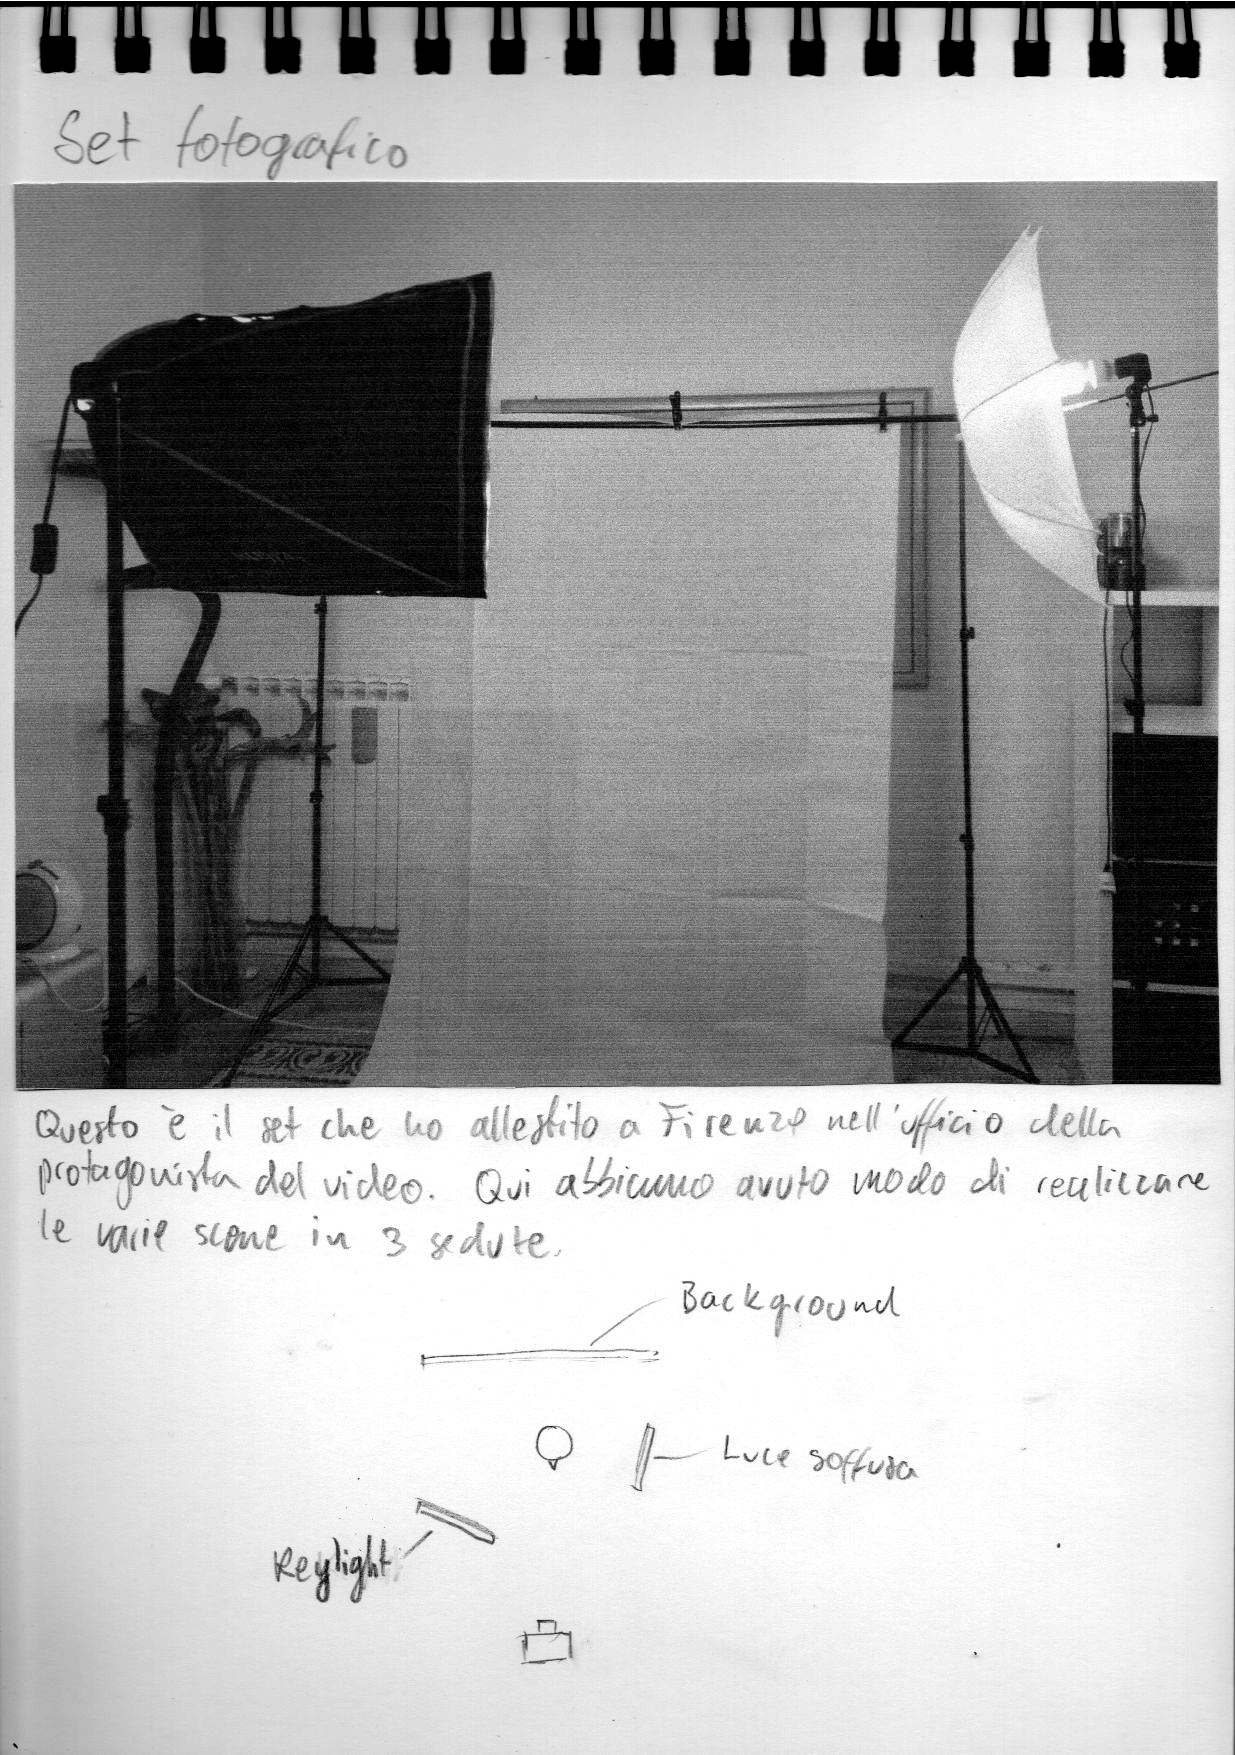 Set fotografico
Questo è il set che ho allestito a Firenze nell'ufficio della
protagonista del video. Qui abbiamo avuto modo di realizzare
le varie scene in 3 sedute.
Background
Luce soffusa
Keylight